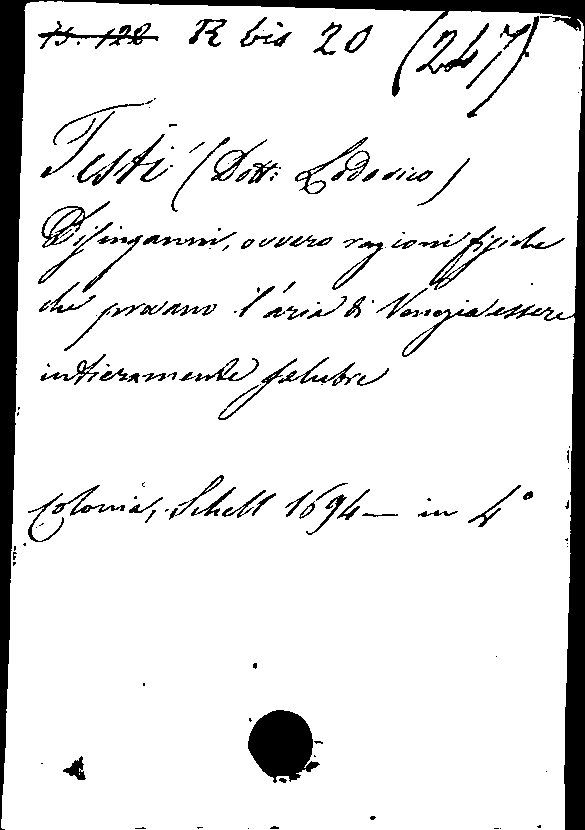 75. 122 R bis 20 (247)
Testi (Dott: Lodovico)
Disinganni, ovvero ragioni fisiche
che provano l'aria di Venezia essere
intieramente salubre
Colonia, Schell 1694 — in 4°